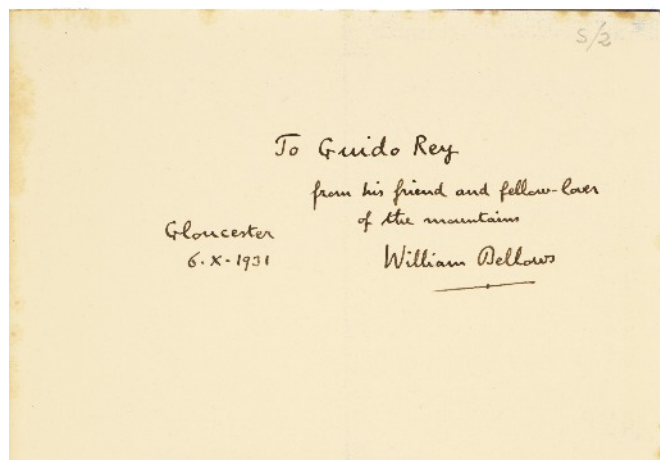 S/2
To Guido Rey
from his friend and fellow-lover
of the mountains
Gloucester
6·X·1931
William Bellows